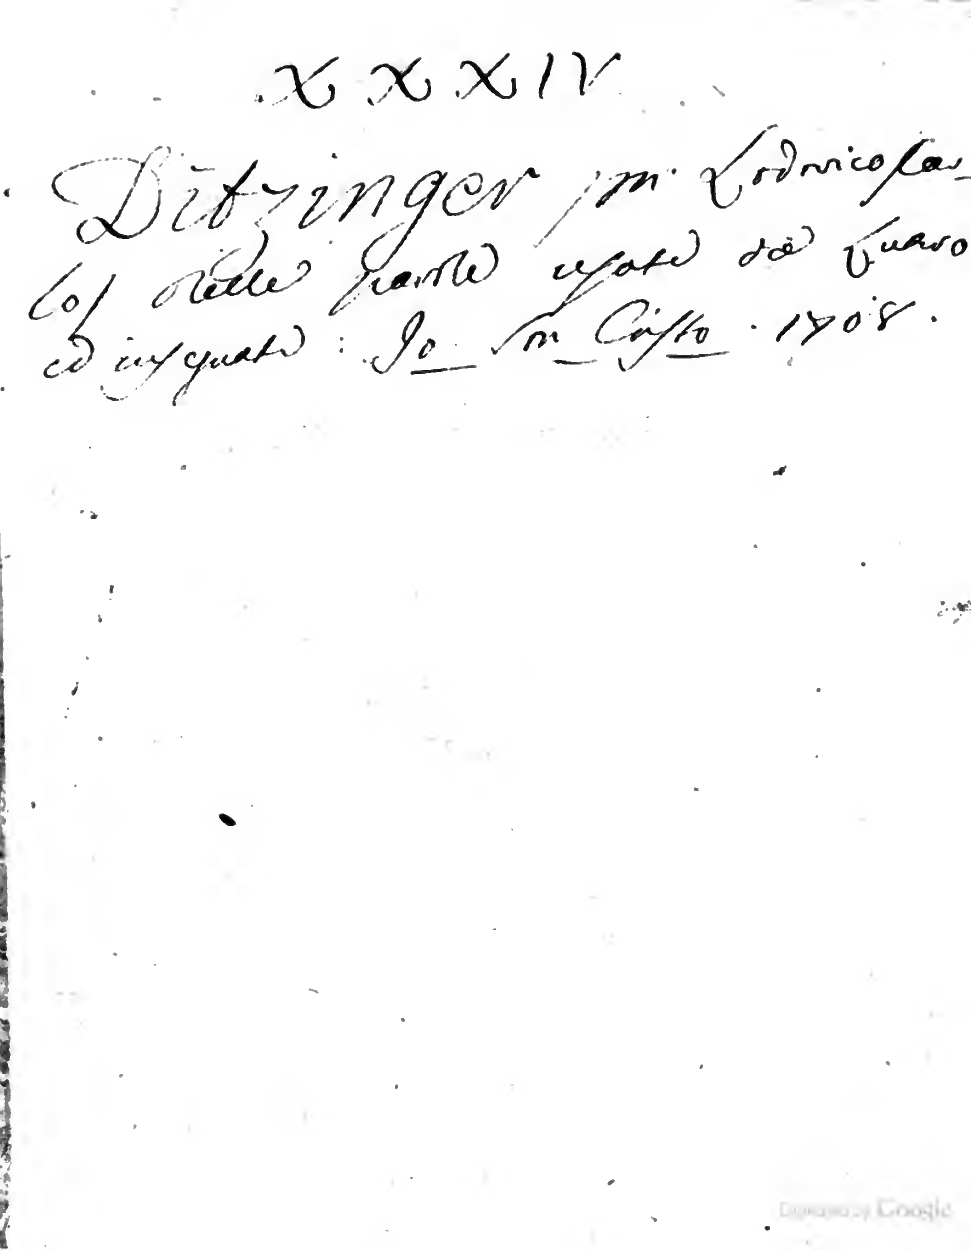 XXXIV
Ditzinger m. Lodovico Car-
los delle parole usate da Quaro
ed insegnate : Io Son Cristo . 1708 .
Digitized by Google